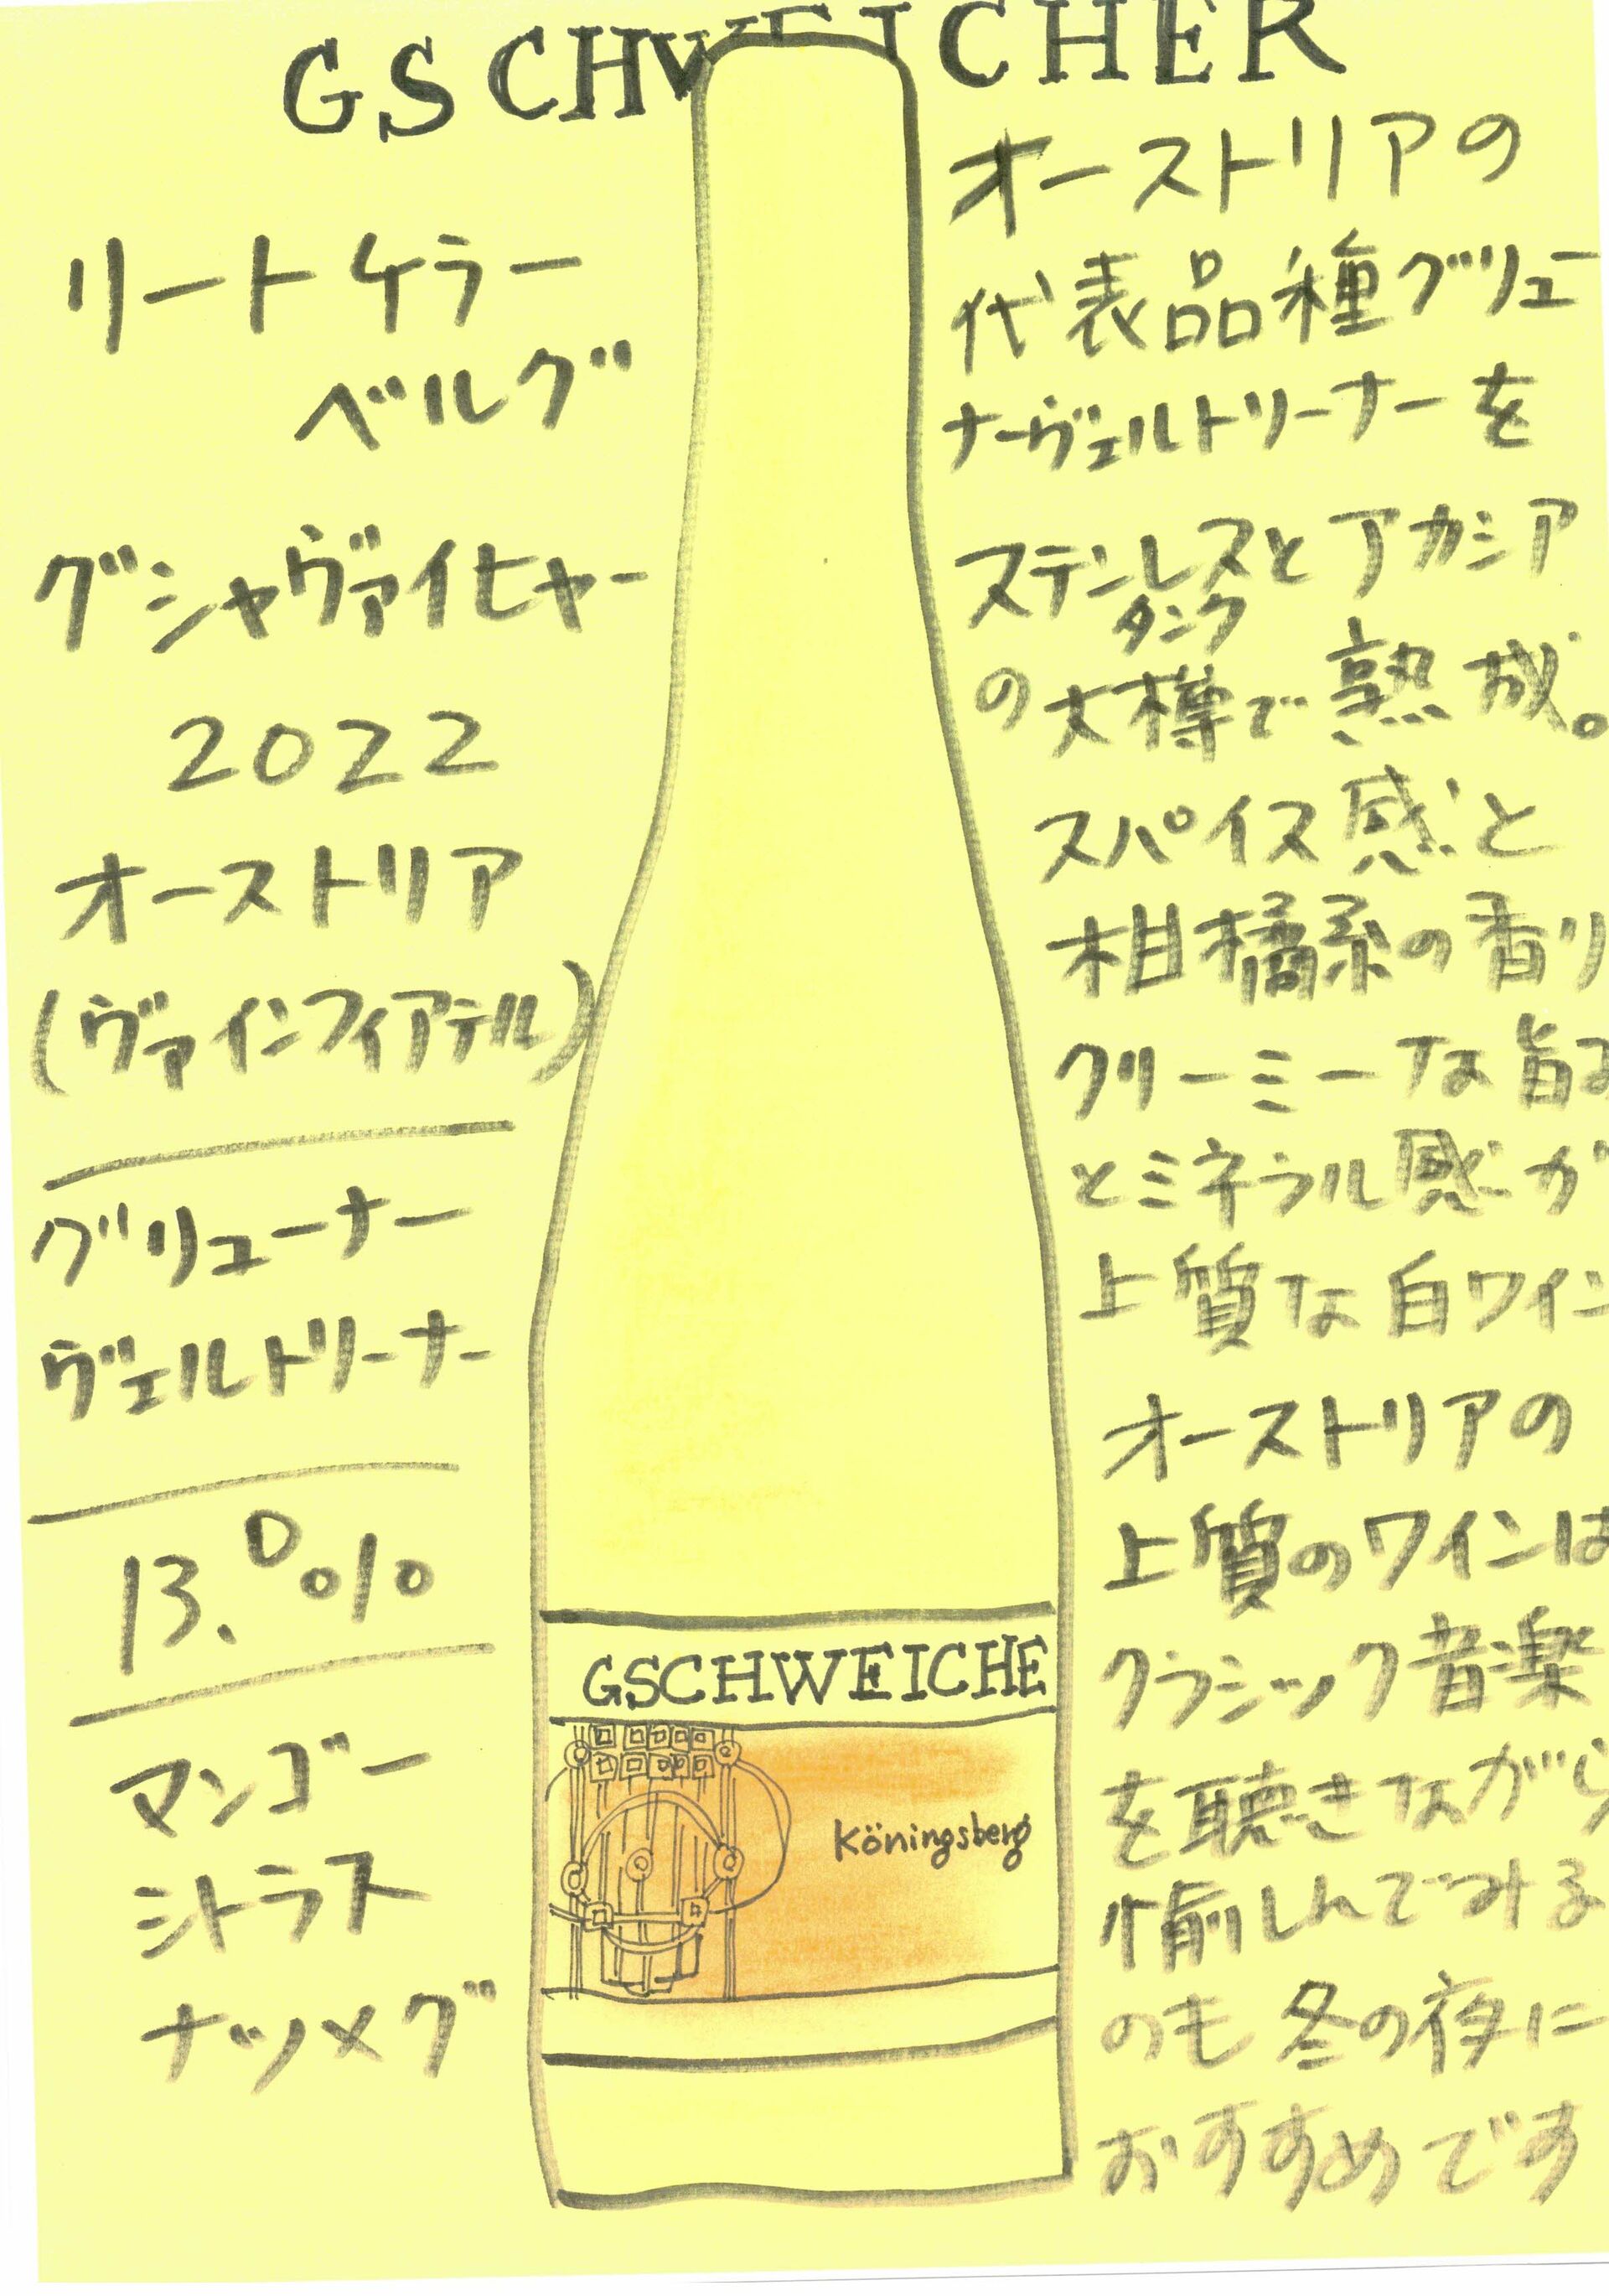 GSCHWEICHER
リートケラー
ベルグ
グシャヴァイヒャー
2022
オーストリア
(ヴァインフィアテル)
グリューナー
ヴェルトリーナー
13.0%
マンゴー
シトラス
ナツメグ
オーストリアの
代表品種グリュー
ナーヴェルトリーナーを
ステンレスとアカシア
タンク
の大樽で熟成。
スパイス感と
柑橘系の香り
クリーミーな旨み
とミネラル感が
上質な白ワイン
オーストリアの
上質のワインは
クラシック音楽
を聴きながら
愉しんでみる
のも冬の夜に
おすすめです
GSCHWEICHE
Köningsberg